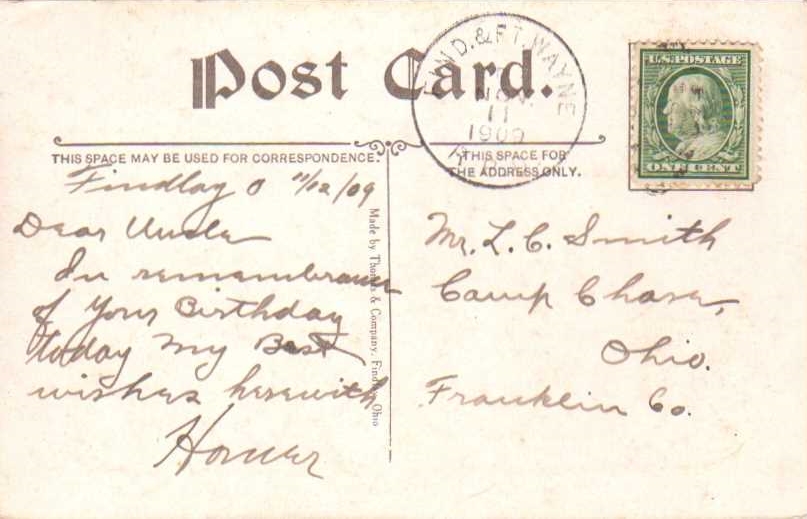 Post Card.
FIND. & FT. WAYNE
NOV
11
1909
U.S. POSTAGE
ONE CENT
THIS SPACE MAY BE USED FOR CORRESPONDENCE.
THIS SPACE FOR
THE ADDRESS ONLY.
Findlay O 11/12/09
Dear Uncle
In remembrance
of Your Birthday
today my Best
wishes herewith
Homer
Made by Thomas & Company, Findlay, Ohio
Mr. L. C. Smith
Camp Chase,
Ohio.
Franklin Co.